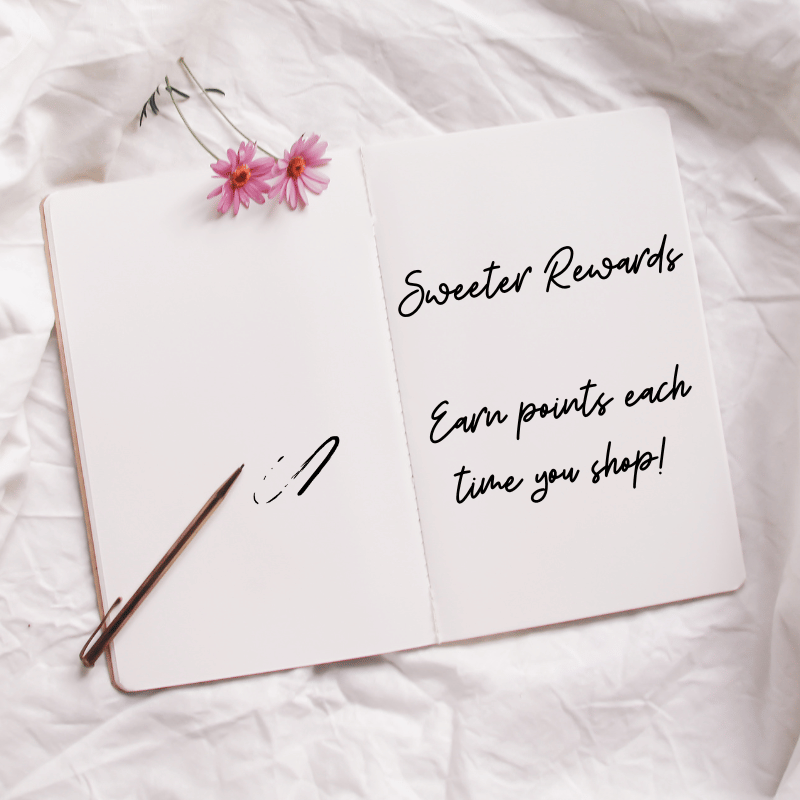 Sweeter Rewards
Earn points each
time you shop!